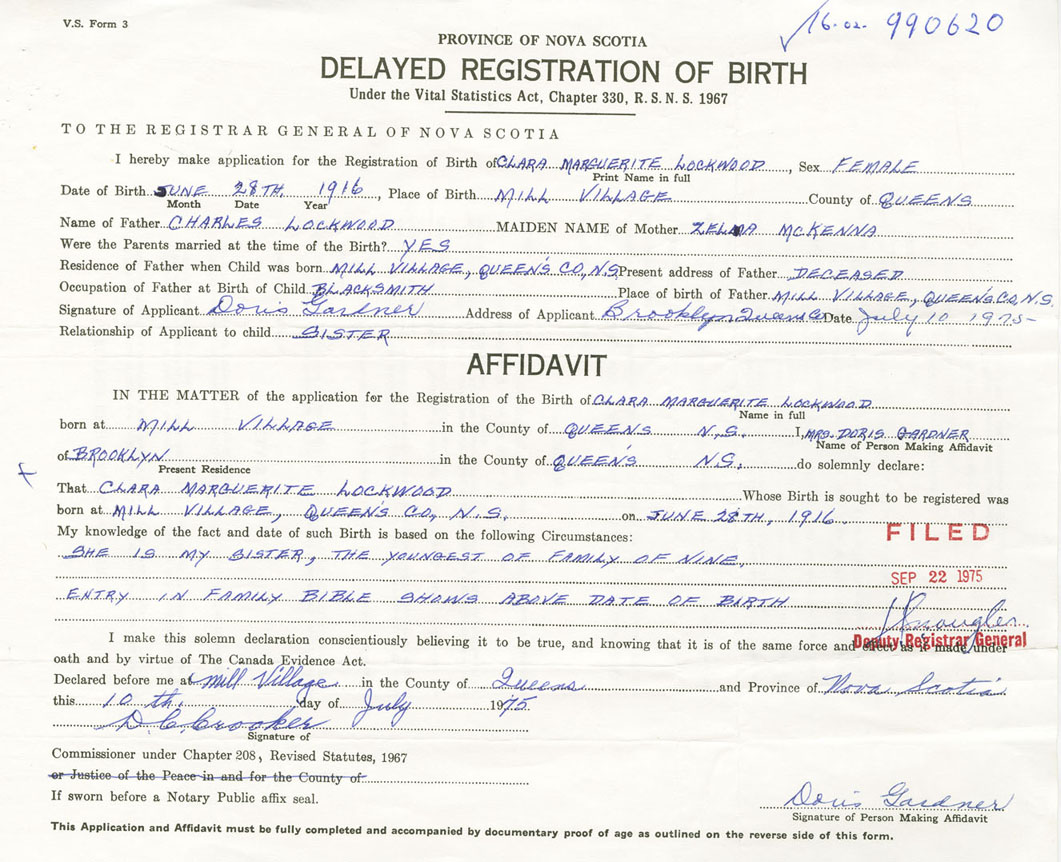 V.S. Form 3
16-02- 990620
PROVINCE OF NOVA SCOTIA
DELAYED REGISTRATION OF BIRTH
Under the Vital Statistics Act, Chapter 330, R. S. N. S. 1967
TO THE REGISTRAR GENERAL OF NOVA SCOTIA
I hereby make application for the Registration of Birth of CLARA MARGUERITE LOCKWOOD, Sex FEMALE
Print Name in full
Date of Birth JUNE 28TH 1916, Place of Birth MILL VILLAGE County of QUEENS
Month Date Year
Name of Father CHARLES LOCKWOOD MAIDEN NAME of Mother MCKENNA
Were the Parents married at the time of the Birth? YES
Residence of Father when Child was born MILL VILLAGE, QUEEN'S CO, N.S Present address of Father DECEASED
Occupation of Father at Birth of Child BLACKSMITH Place of birth of Father MILL VILLAGE, QUEEN'S CO, N.S.
Signature of Applicant Doris Gardner Address of Applicant Brooklyn Queens Co Date July 10 1975-
Relationship of Applicant to child SISTER
AFFIDAVIT
IN THE MATTER of the application for the Registration of the Birth of CLARA MARGUERITE LOCKWOOD
Name in full
born at MILL VILLAGE in the County of QUEENS N.S. I, MRS. DORIS GARDNER
Name of Person Making Affidavit
of BROOKLYN in the County of QUEEN'S N.S. do solemnly declare:
Present Residence
That CLARA MARGUERITE LOCKWOOD Whose Birth is sought to be registered was
born at MILL VILLAGE, QUEEN'S CO, N.S. on JUNE 28TH, 1916.
My knowledge of the fact and date of such Birth is based on the following Circumstances:
FILED
SHE IS MY SISTER, THE YOUNGEST OF FAMILY OF NINE.
SEP 22 1975
ENTRY IN FAMILY BIBLE SHOWS ABOVE DATE OF BIRTH
I make this solemn declaration conscientiously believing it to be true, and knowing that it is of the same force and effect as if made under
Deputy Registrar General
oath and by virtue of The Canada Evidence Act.
Declared before me at Mill Village in the County of Queens and Province of Nova Scotia
this 10th day of July 1975
D.C. Crooker
Signature of
Commissioner under Chapter 208, Revised Statutes, 1967
or Justice of the Peace in and for the County of
If sworn before a Notary Public affix seal.
Doris Gardner
Signature of Person Making Affidavit
This Application and Affidavit must be fully completed and accompanied by documentary proof of age as outlined on the reverse side of this form.